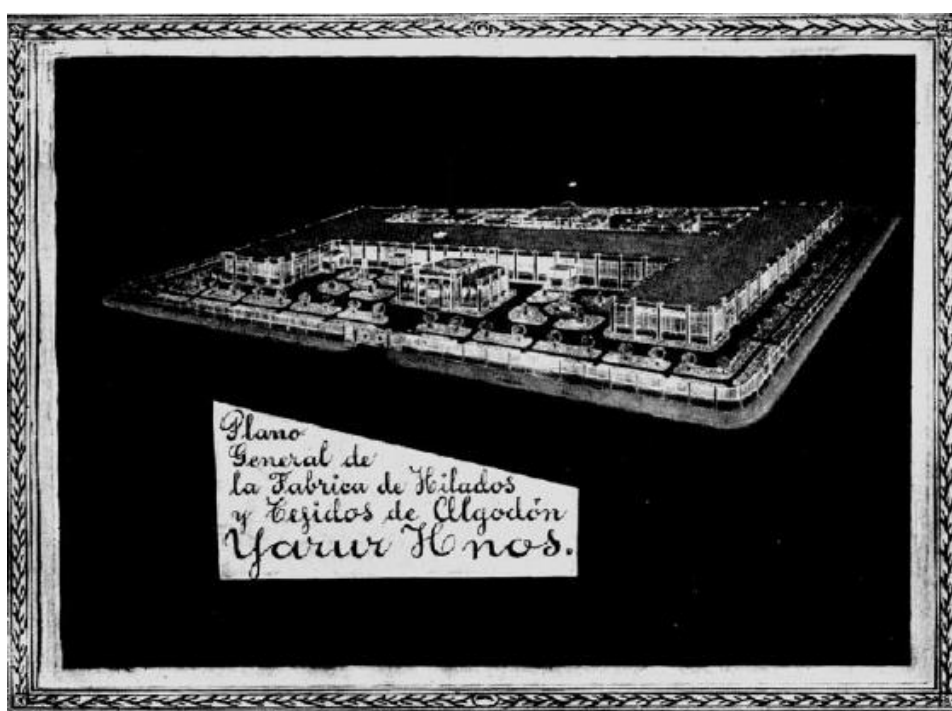 Plano
General de
la Fabrica de Hilados
y Tejidos de Algodón
Yarur Hnos.